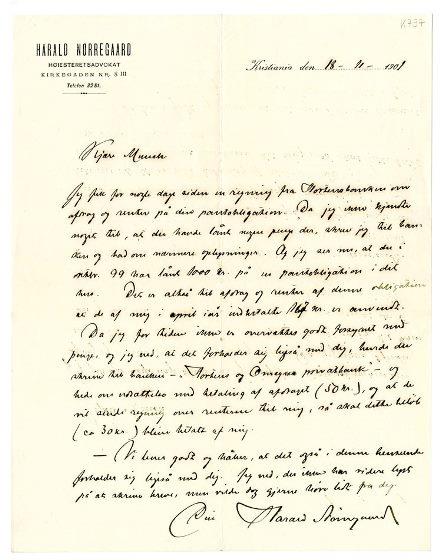 K 737
HARALD NØRREGAARD
HØIESTERETSADVOKAT
KIRKEGADEN NR. 8 III
Telefon 2281.
Kristiania den 18 - 11 - 1901
Kjære Munch
Jeg fik for nogle dage siden en regning fra Hortensbanken om
afdrag og renter på din pantobligation. Da jeg ikke kjendte
noget til, at du havde lånt nogen penge der, skrev jeg til ban-
ken og bad om nærmere oplysninger. Og jeg ser nu, at du i
oktbr. 99 har lånt 1000 kr. på en pantobligation i dit
hus. Det er altså til afdrag og renter af denne obligation
at de af mig i april iår indbetalte kr. er anvendt.
Da jeg for tiden ikke er overvættes godt forsynet med
penge, og jeg ved, at det forholder sig ligeså med dig, burde du
skrive til banken – Hortens og Omegns privatbank – og
bede om udsættelse med betaling af afdraget (50 kr), og at de
vil sende regning over renterne til mig, så skal dette beløb
(ca 30 kr) blive betalt af mig.
– Vi lever godt og håber, at det også i denne henseende
forholder sig ligeså med dig. Jeg ved, du ikke har videre lyst
på at skrive breve, men vilde dog gjerne høre lidt fra dig
Din Harald Nørregaard